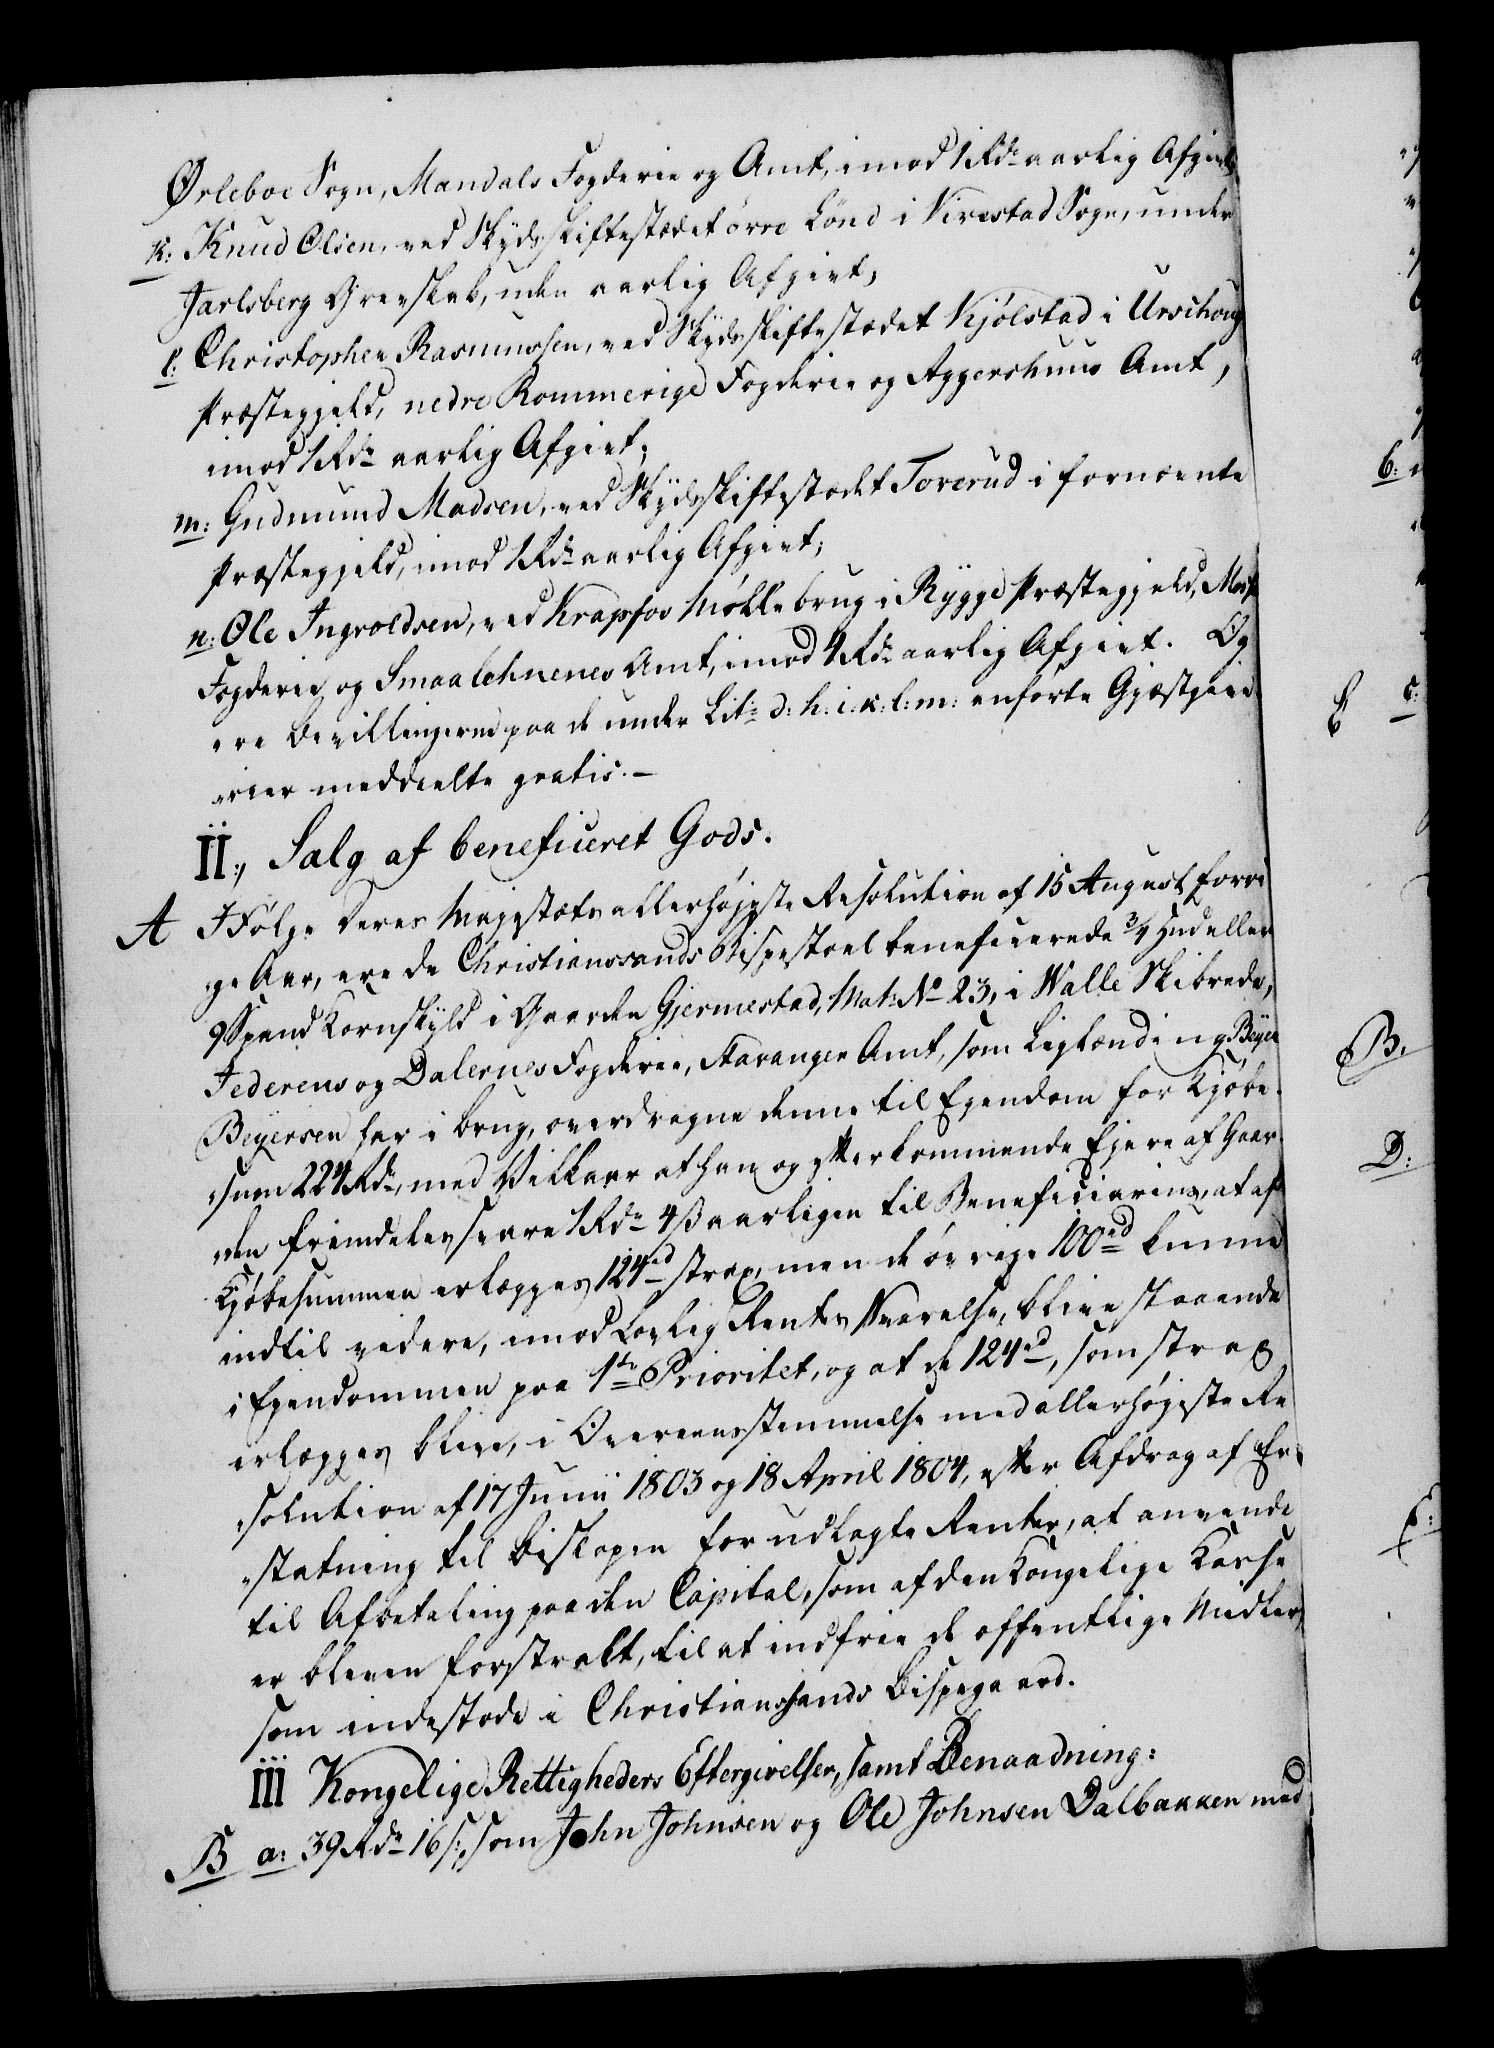 Ørleboe Sogn, Mandals Fogderie og Amt, imod 1 Rdr aarlig Afgivt,
k: Knud Olsen, ved Skydsskiftestædet örre Lönd i Nirestad Sogn, under
Jarlsberg Grevskab, uden aarlig Afgivt,
l: Christopher Rasmussen, ved Skydsskiftestædet Kjölstad i Urschoug
Præstegjeld, nedre Rommerige Fogderie og Aggershuus Amt,
imod 1 Rdr aarlig Afgivt;
m: Gudmund Madsen, ved Skydsskiftestædet Toverud i fornævnte
Præstegjeld, imod 1 Rdr aarlig Afgivt;
n: Ole Ingvoldsen, ved Krapfos Møllebrug i Rygge Præstegjeld, Moss
Fogderie og Smaalehnenes Amt, imod 4 Rdr aarlig Afgivt. Og
ere Bevillingerne paa de under Lit: d: h: i: k: l: m: anførte Gjæstgive-
rier meddeelte gratis. –
II:, Salg af beneficeret Gods.
A Ifølge Deres Majestæts allerhøjeste Resolution af 15 August forri-
ge Aar, ere de Christianssands Bispestoel beneficerede 3/4 Huud eller
9 Spand Kornskyld i Gaarden Gjermestad, Mat: No 23, i Walle Skibrede,
Jederens og Dalernes Fogderie, Stavanger Amt, som Leylænding Beyer
Beyersen har i Brug, overdragne denne til Ejendom for Kjøbe-
sum 224 Rdr, med Vilkaar at han og efterkommende Ejere af Gaar-
den fremdeles svare 1 Rdr 4 ß aarligen til Beneficiarius, at af
Kjøbesummen erlægges 124 rd strax, men de øvrige 100 rd kunne
indtil videre, imod lovlig Renters Svarelse, blive staaende
i Ejendommen paa 1ste Prioritet, og at de 124 rd, som strax
erlægges blive, i Overeensstemmelse med allerhøjeste Re-
solution af 17 Junii 1803 og 18 April 1804, efter Afdrag af Er-
statning til Biskopen for udlagte Renter, at anvende
til Afbetaling paa den Capital, som af den Kongelige Kasse
er bleven forstrakt, til at indfrie de offentlige Midler,
som indestode i Christianssands Bispegaard.
III Kongelige Rettigheders Eftergivelser, samt Benaadning:
B a: 39 Rdr 16 s:, som John Johnsen og Ole Johnsen Dalbakken med
b:
E c:
B.
D:
E: